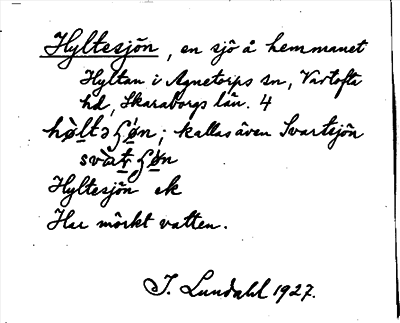 Hyltesjön, en sjö å hemmanet
Hyltan i Agnetorps sn, Vartofta
hd, Skaraborgs län. 4
hø̀ltə ʃø̀n; kallas även Svartsjön
svàt ʃø̀n
Hyltesjön ek
Har mörkt vatten.
J. Lundahl 1927.